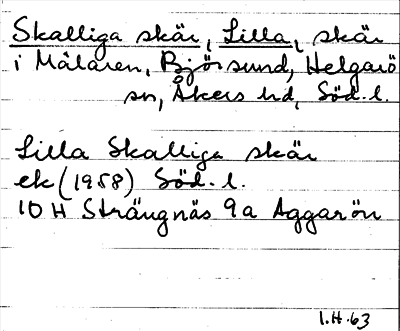 Skalliga skär, Lilla, skär
i Mälaren, Björsund, Helgarö
sn, Åkers hd, Söd. l.
Lilla Skalliga skär
ek (1958) Söd. l.
10 H Strängnäs 9 a Aggarön
I.H.63